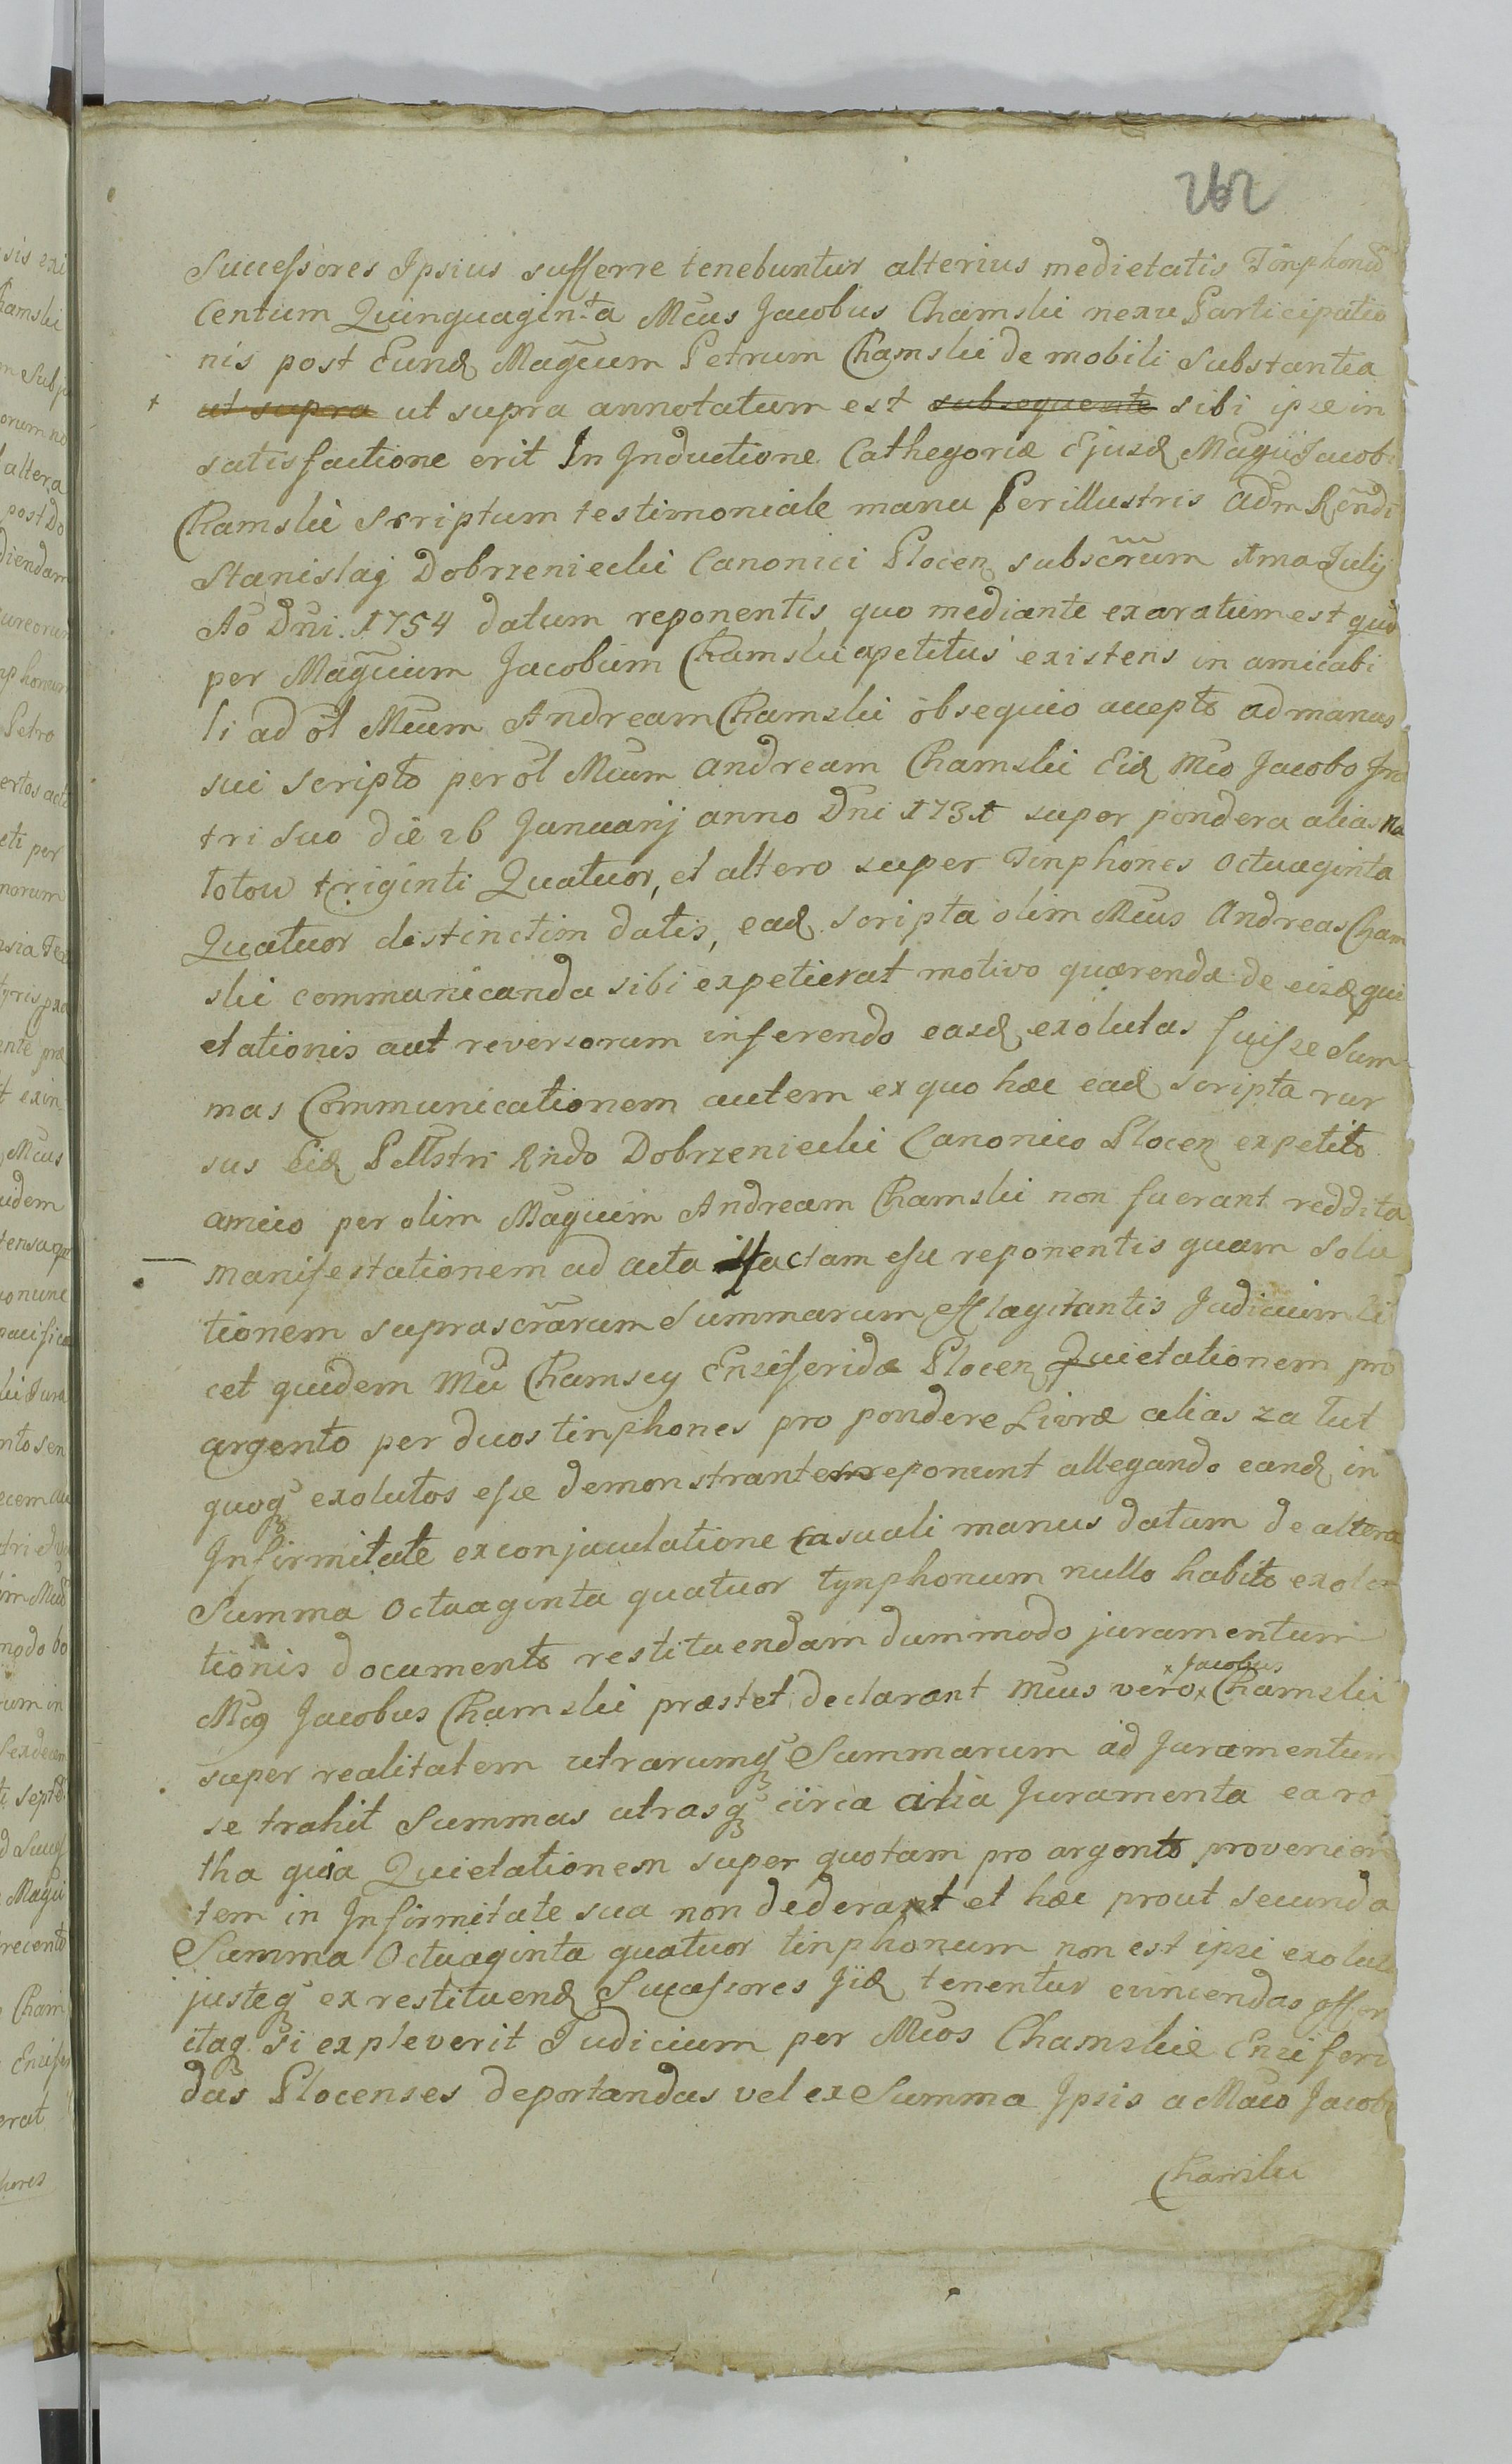 262
Successores Ipsius sufferre tenebuntur alterius medietatis Tinphonũ
Centum Quinquaginta Mcus Jacobus Chamski nexu Participatio
nis post Eund Magcum Petrum Chamski de mobili Substantia
+ ut supra ut supra annotatum est subsequente sibi ipse in
satisfactione erit In Inductione Cathegoriæ Ejusd Magci Jacobi
Chamski scriptum testimoniale manu Perillustris Adm Rendi
Stanislai Dobrzeniecki Canonici Plocen subscrum 1ma Julij
Ao Dni. 1754 datum reponentis quo mediante exaratum est quod
per Magcum Jacobum Chamski expetitus existens in amicabi
li ad ol Mcum Andream Chamski obsequio accepto ad manus
sui scripto per ol Mcum Andream Chamski Eid Mco Jacobo
tri suo die 26 Januarij anno Dni 1731 super pondera alias
totow triginti Quatuor, et altero super Tinphones Octuaginta
Quatuor distinctim datis, ead scripta olim Mcus Andreas Cham
ski communicanda sibi expetierat motivo quærendæ de eisd qui
etationis aut reversorum inferendo easd exolutas fuisse Sum
mas Communicationem autem ex quo hæc ead scripta rur
sus Eid Pllstri Rndo Dobrzeniecki Canonico Plocen expetito
amico per olim Magcum Andream Chamski non fuerant reddita
manifestationem ad acta factam esse reponentis quam Solu
tionem suprascrarum Summarum efflagitantis Judicium li
cet quidem Mci Chamscy Ensiferidæ Plocen Quietationem pro
argento per duos tinphones pro pondere Livræ alias za łut
quoq exolutos esse demonstrantem reponunt allegando eand in
Infirmitate ex conjaculatione Casuali manus datam de altera
Summa Octuaginta quatuor tynphonum nullo habito exolu
tionis documento restituendam dummodo juramentum
x Jacobus
Mcus Jacobus Chamski præstet declarant Mcus vero x Chamski
super realitatem utrarumq Summarum ad Juramentum
se trahit Summas utrasq circa alia Juramenta ea ro
tha quia Quietationem super quotam pro argento provenien
tem in Infirmitate sua non dederant et hæc prout secunda
Summa Octuaginta quatuor tinphonum non est ipsi exoluta
justeq ex restituend Successores Iid tenentur evincendas offert
itaq si expleverit Judicium per Mcos Chamskie Ensiferi
das Plocenses deportandas vel ex Summa Ipsis a Mco Jacobo
Chamski